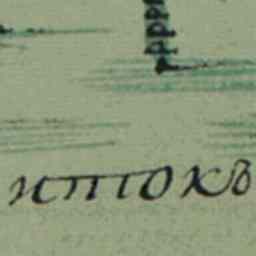 истокъ